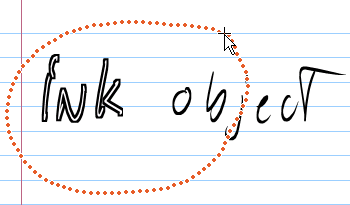 Ink object